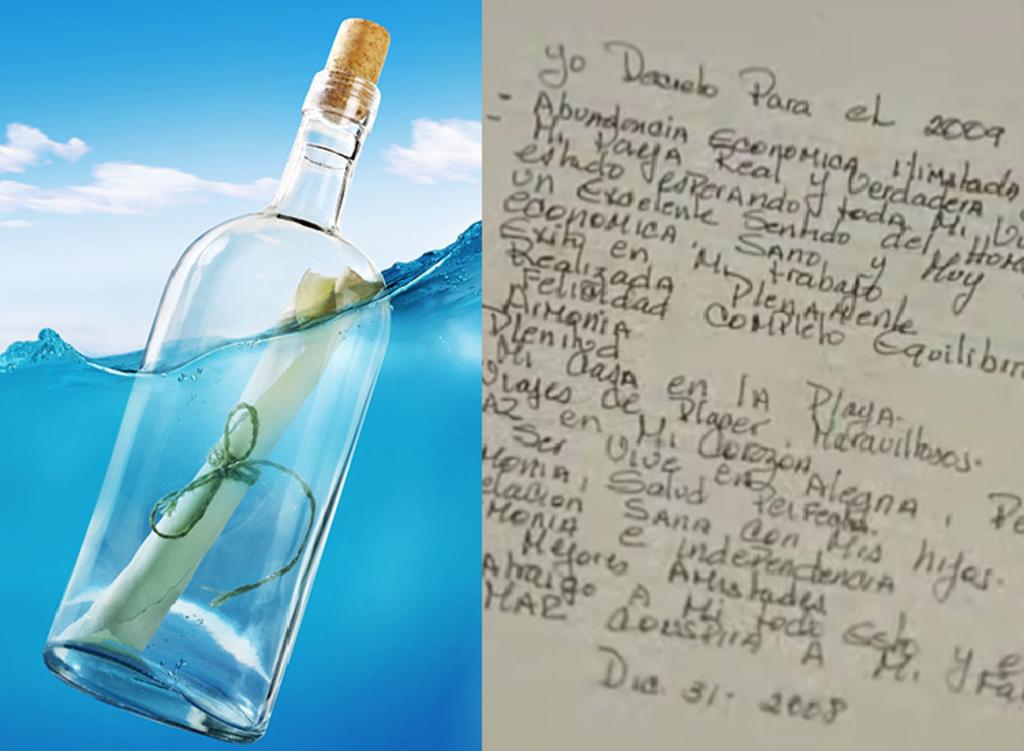 Yo Decreto Para el 2009
- Abundancia Economica ilimitada
- Mi Pareja Real y Verdadera
estado esperando toda Mi
un Excelente Sentido del
economica, SANO y Muy
Exito en Mi trabajo
Realizada Plenamente
Felicidad completo Equilibri
Armonia
Plenitud
Mi Casa en la Playa.
Viajes de Placer Maravillosos.
AZ en Mi Corazón
Ser Vive en Alegria, Pe
Monia, Salud Perfecta.
elacion SANA con Mis hijos.
Monia e independencia
Mejores Amistades
Atraigo A Mi todo esto y el
MAR Conspira A Mi Fa
Dic. 31. 2008